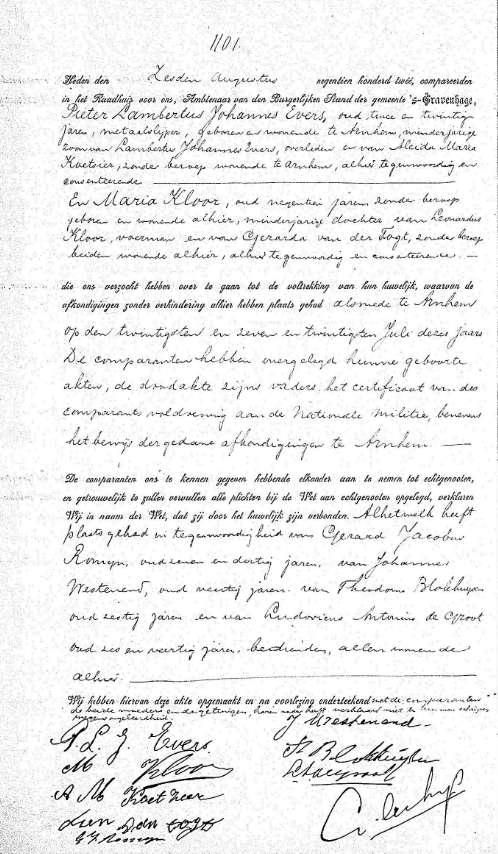 1101.
Heden den Zesden Augustus negentien honderd twee, compareerden
in het Raadhuis voor ons, Ambtenaar van den Burgerlijken Stand der gemeente 's-Gravenhage,
Pieter Lambertus Johannes Evers, oud twee en twintig
jaren, metaalslijper, geboren en wonende te Arnhem, minderjarige
zoon van Lambertus Johannes Evers, overleden en van Aleida Maria
Koetsier, zonder beroep wonende te Arnhem, alhier tegenwoordig en
consenteerende
En Maria Kloor, oud negentien jaren, zonder beroep
geboren en wonende alhier, minderjarige dochter van Leonardus
Kloor, voerman en van Gerarda van der Togt, zonder beroep
beiden wonende alhier, alhier tegenwoordig en consenteerende. —
die ons verzocht hebben over te gaan tot de voltrekking van hun huwelijk, waarvan de
afkondigingen zonder verhindering alhier hebben plaats gehad alsmede te Arnhem
op den twintigsten en zeven en twintigsten Juli dezes jaars
De comparanten hebben overgelegd hunne geboorte
akten, de doodakte zijns vaders, het certificaat van des
comparants voldoening aan de Nationale Militie, benevens
het bewijs der gedane afkondigingen te Arnhem. —
De comparanten ons te kennen gegeven hebbende elkander aan te nemen tot echtgenooten,
en getrouwelijk te zullen vervullen alle plichten bij de Wet aan echtgenooten opgelegd, verklaren
Wij in naam der Wet, dat zij door het huwelijk zijn verbonden. Alhetwelk heeft
plaats gehad in tegenwoordigheid van Gerard Jacobus
Romijn, oud zeven en dertig jaren, van Johannes
Westenend, oud veertig jaren, van Theodorus Blokhuijzen
oud zestig jaren en van Ludovicus Antonius de Groot
oud zes en veertig jaren, bedienden, allen wonende
alhier.
Wij hebben hiervan deze akte opgemaakt en na voorlezing onderteekend met de comparanten
de beide moeders en de getuigen,
P. L. J. Evers
J Westenend.
M Kloor
A M Koetsier